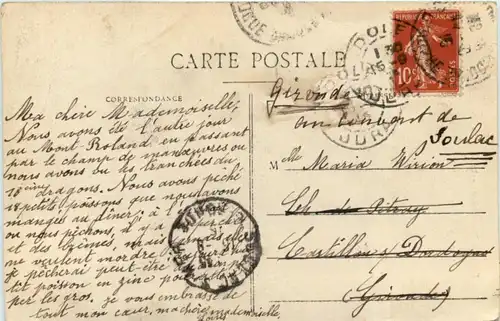 CARTE POSTALE
CORRESPONDANCE
REPUBLIQUE FRANÇAISE
10c
POSTES
DOLE
JURA
Gironde
au couvent de
Soulac
Mlle Maria Wirion
Ch de Pitray
Castillon s/ Dordogne
(Gironde)
Ma chère Mademoiselle,
Nous avons été l'autre jour
au Mont Roland en passant
par le champ de manœuvres ou
nous avons vu les tranchées du
18ème dragons. Nous avons pêché
18 petits poissons que nous avons
mangés au dîner, à
ou nous pêchons, il y a
et des brèmes, mais
veulent mordre
Je pêcherai peut être
tit poisson en zinc
per les gros. Je vous embrasse de
tout mon cœur, ma chère mademoiselle,